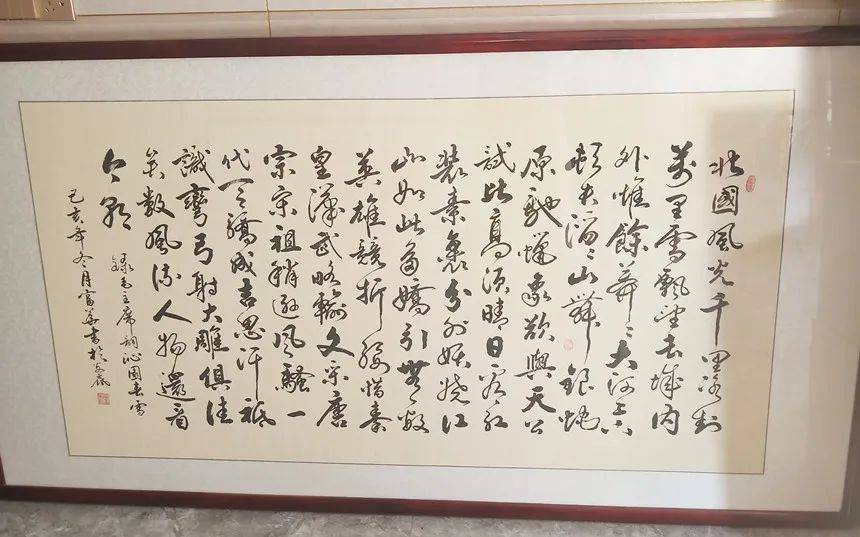 北國風光千里冰封
萬里雪飄望长城内
外惟餘莽〻大河上下
頓失滔〻山舞銀蛇
原馳蠟象欲與天公
試比高須晴日看红
裝素裹分外妖娆江
山如此多嬌引無數
英雄競折腰惜秦
皇漢武略輸文采唐
宗宋祖稍遜風騷一
代天驕成吉思汗祗
識彎弓射大雕俱往
矣數風流人物還看
今朝
錄毛主席詞沁園春雪
己亥年冬月富華書於